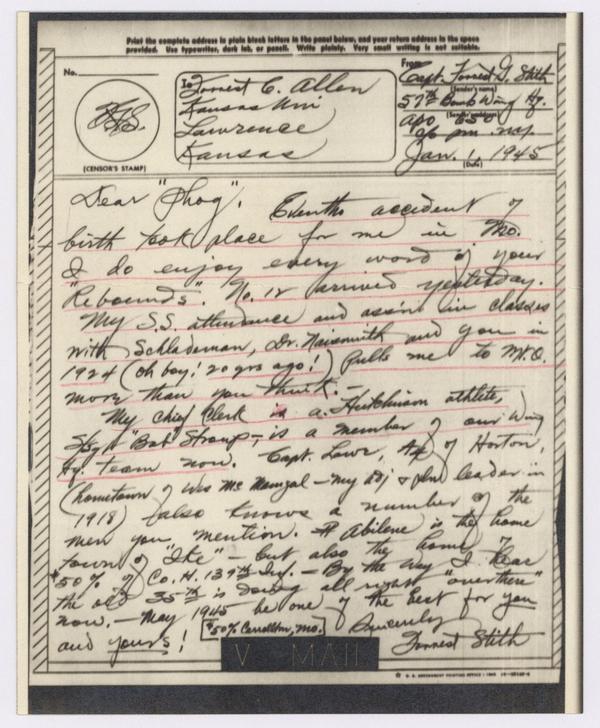 Print the complete address in plain block letters in the panel below, and your return address in the space
provided. Use typewriter, dark ink, or pencil. Write plainly. Very small writing is not suitable.
No.
(CENSOR'S STAMP)
To
Forrest C. Allen
Kansas Uni
Lawrence
Kansas
From
Capt. Forrest G. Stith
(Sender's name)
57th Bomb Wing Hq.
(Sender's address)
APO 650
c/o pm. n.y.
Jan. 1, 1945
(Date)
Dear "Phog".
accident of
birth took place for me in Mo.
I do enjoy every word of your
"Rebounds". No. 12 arrived yesterday.
My S.S. attendance and assn in classes
with Schlademan, Dr. Naismith and you in
1924 (oh boy! 20 yrs ago!) pulls me to
more than you think.-
My chief clerk is a Hutchinson athlete,
"Bob" - is a member of our Wing
Hq. team now. Capt. Lowr, of Horton,
(hometown of - my Adj & leader in
1918) also knows a number of the
men you mention. Abilene is the home
town of "Ike" - but also the home of
*50% of Co. H. 139th Inf. - By the way I hear
the old 35th is doing all right "over there"
now. - May 1945 be one of the best for you
and yours!
*50% Carrollton, Mo.
Sincerely
Forrest Stith
V MAIL
U. S. GOVERNMENT PRINTING OFFICE